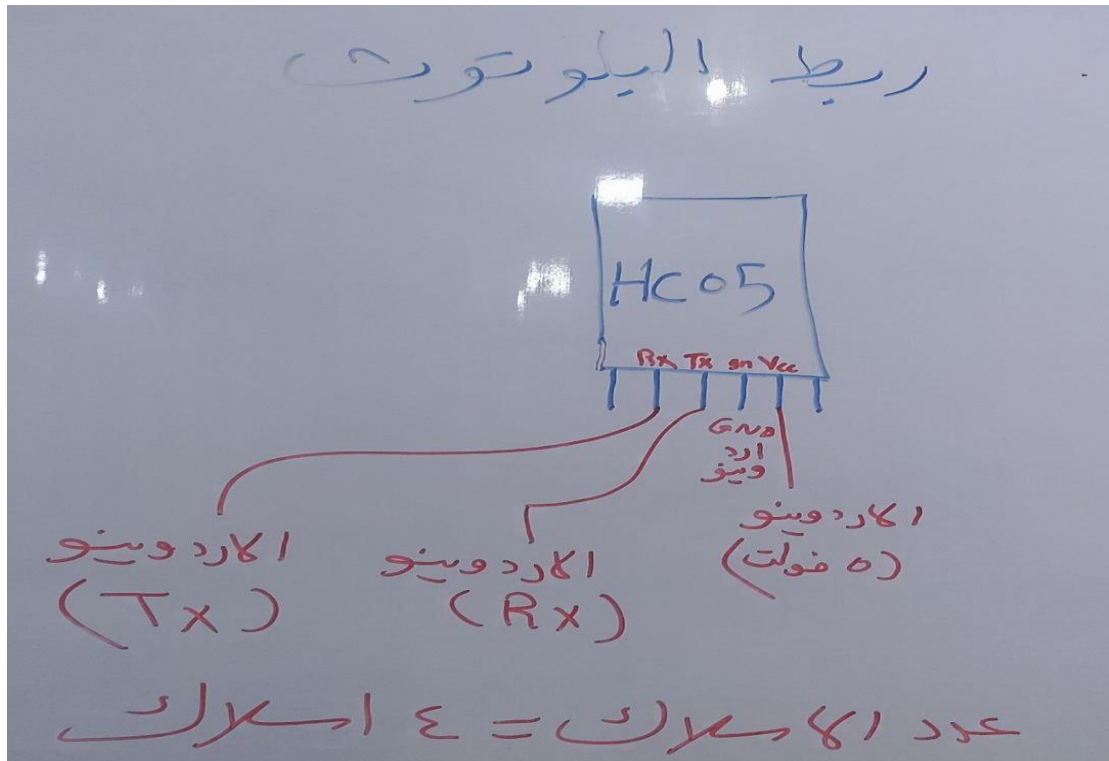 ربط البلوتوث
HC05
Rx Tx gn Vcc
GND
ارد
وينو
الاردوينو
(٥ فولت)
الاردوينو
(Rx)
الاردوينو
(Tx)
عدد الاسلاك = ٤ اسلاك